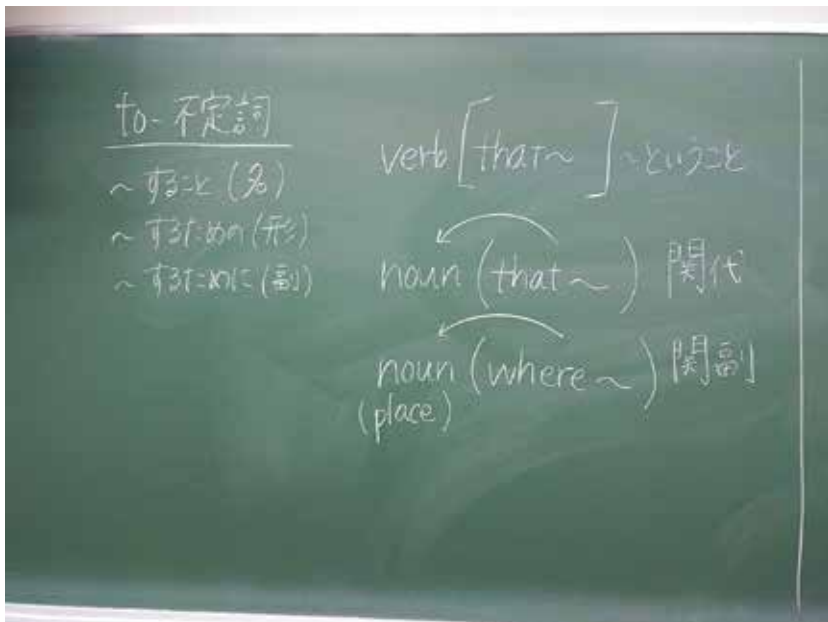 to-不定詞
～すること(名)
～するための(形)
～するために(副)
verb [that～] ～ということ
noun (that～) 関代
noun (where～) 関副
(place)